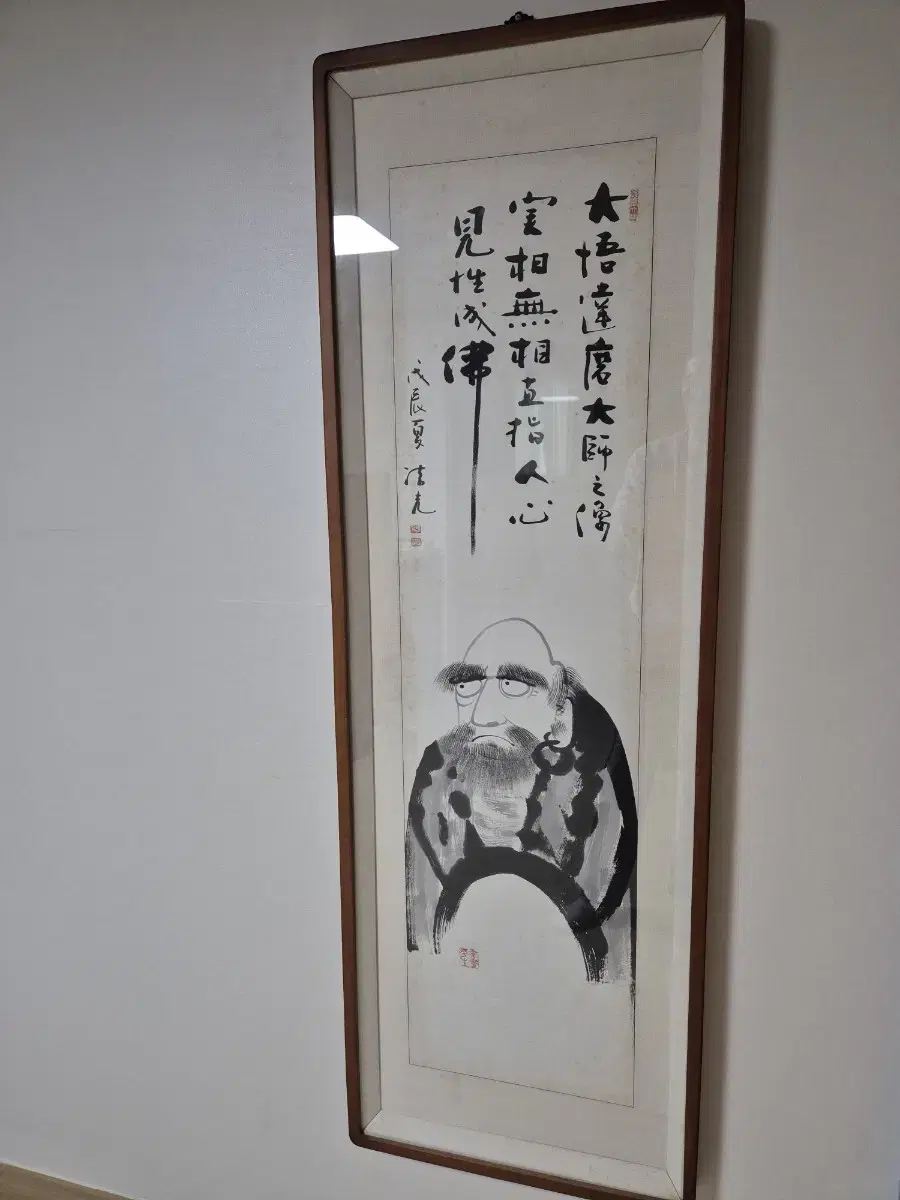 大悟達磨大師之像
實相無相直指人心
見性成佛
戊辰夏 法光